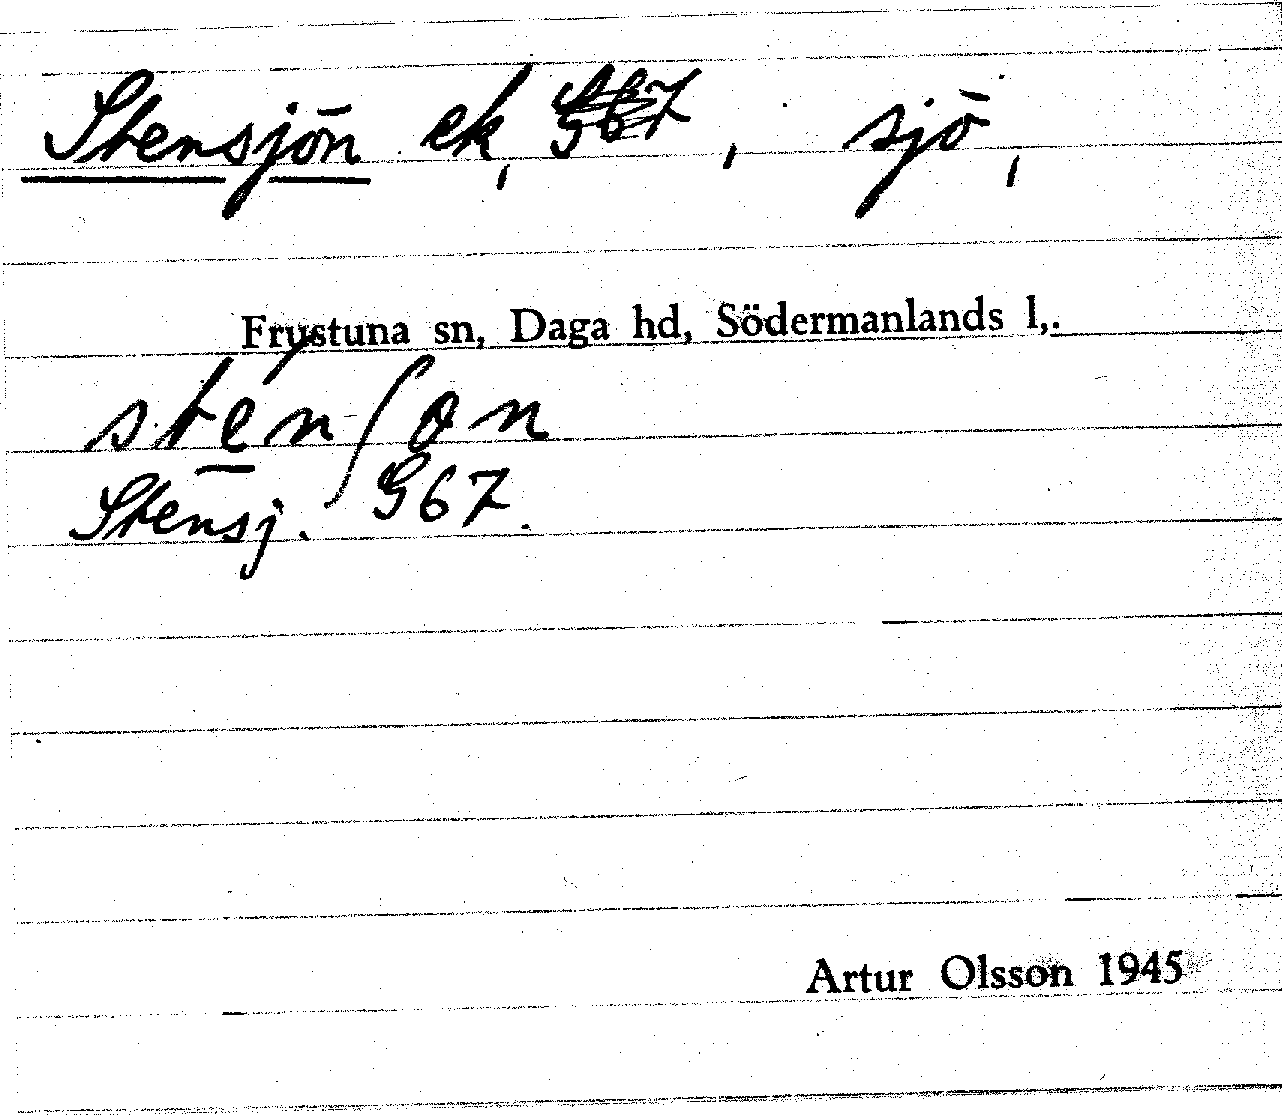 Stensjön ek, G67, sjö,
Frustuna sn, Daga hd, Södermanlands l,.
stenʃon
Stensj. G67.
Artur Olsson 1945